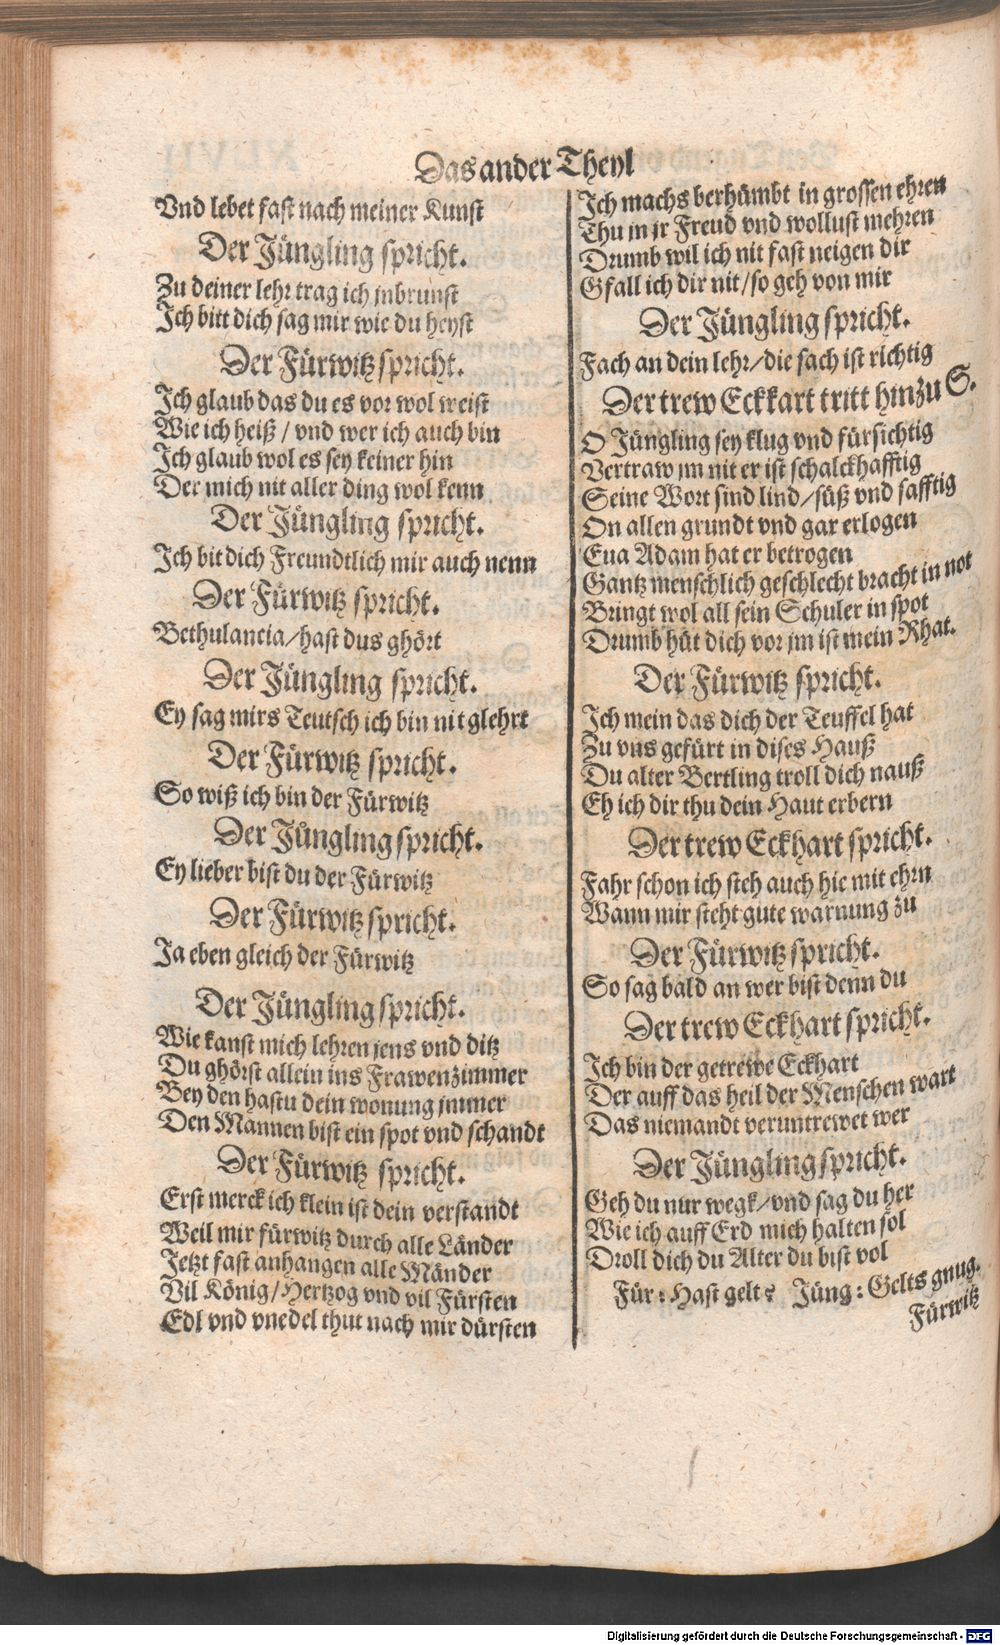 Das ander Theyl
Vnd lebet fast nach meiner Kunst
Der Jüngling spricht.
Zu deiner lehr trag ich jnbrunst
Ich bitt dich sag mir wie du heyst
Der Fürwitz spricht.
Ich glaub das du es vor wol weist
Wie ich heiß / vnd wer ich auch bin
Ich glaub wol es sey keiner hin
Der mich nit aller ding wol kenn
Der Jüngling spricht.
Ich bit dich Freundtlich mir auch nenn
Der Fürwitz spricht.
Bethulantia / hast dus ghört
Der Jüngling spricht.
Ey sag mirs Teutsch ich bin nit glehrt
Der Fürwitz spricht.
So wiß ich bin der Fürwitz
Der Jüngling spricht.
Ey lieber bist du der Fürwitz
Der Fürwitz spricht.
Ja eben gleich der Fürwitz
Der Jüngling spricht.
Wie kanst mich lehren jens vnd ditz
Du ghörst allein ins Frawenzimmer
Bey den hastu dein wonung jmmer
Den Mannen bist ein spot vnd schandt
Der Fürwitz spricht.
Erst merck ich klein ist dein verstandt
Weil mir fürwitz durch alle Länder
Jetzt fast anhangen alle Mänder
Vil König / Hertzog vnd vil Fürsten
Edl vnd vnedel thut nach mir dürsten
Ich machs berhümbt in grossen ehren
Thu in jr Freud vnd wollust mehren
Drumb wil ich nit fast neigen dir
Gfall ich dir nit / so geh von mir
Der Jüngling spricht.
Fach an dein lehr / die sach ist richtig
Der trew Eckkart tritt hinzu S.
O Jüngling sey klug vnd fürsichtig
Vertraw jm nit er ist schalckhafftig
Seine Wort sind lind / süß vnd safftig
On allen grundt vnd gar erlogen
Eua Adam hat er betrogen
Gantz menschlich geschlecht bracht in not
Bringt wol all sein Schuler in spot
Drumb hüt dich vor jm ist mein Rhat.
Der Fürwitz spricht.
Ich mein das dich der Teuffel hat
Zu vns gefürt in dises Hauß
Du alter Bertling troll dich nauß
Eh ich dir thu dein Haut erbern
Der trew Eckhart spricht.
Fahr schon ich steh auch hie mit ehrn
Wann mir steht gute warnung zu
Der Fürwitz spricht.
So sag bald an wer bist denn du
Der trew Eckhart spricht.
Ich bin der getrewe Eckhart
Der auff das heil der Menschen wart
Das niemandt veruntrewet wer
Der Jüngling spricht.
Geh du nur wegk / vnd sag du her
Wie ich auff Erd mich halten sol
Droll dich du Alter du bist vol
Für: Hast gelt? Jüng: Gelts gnug.
Fürwitz
Digitalisierung gefördert durch die Deutsche Forschungsgemeinschaft - DFG